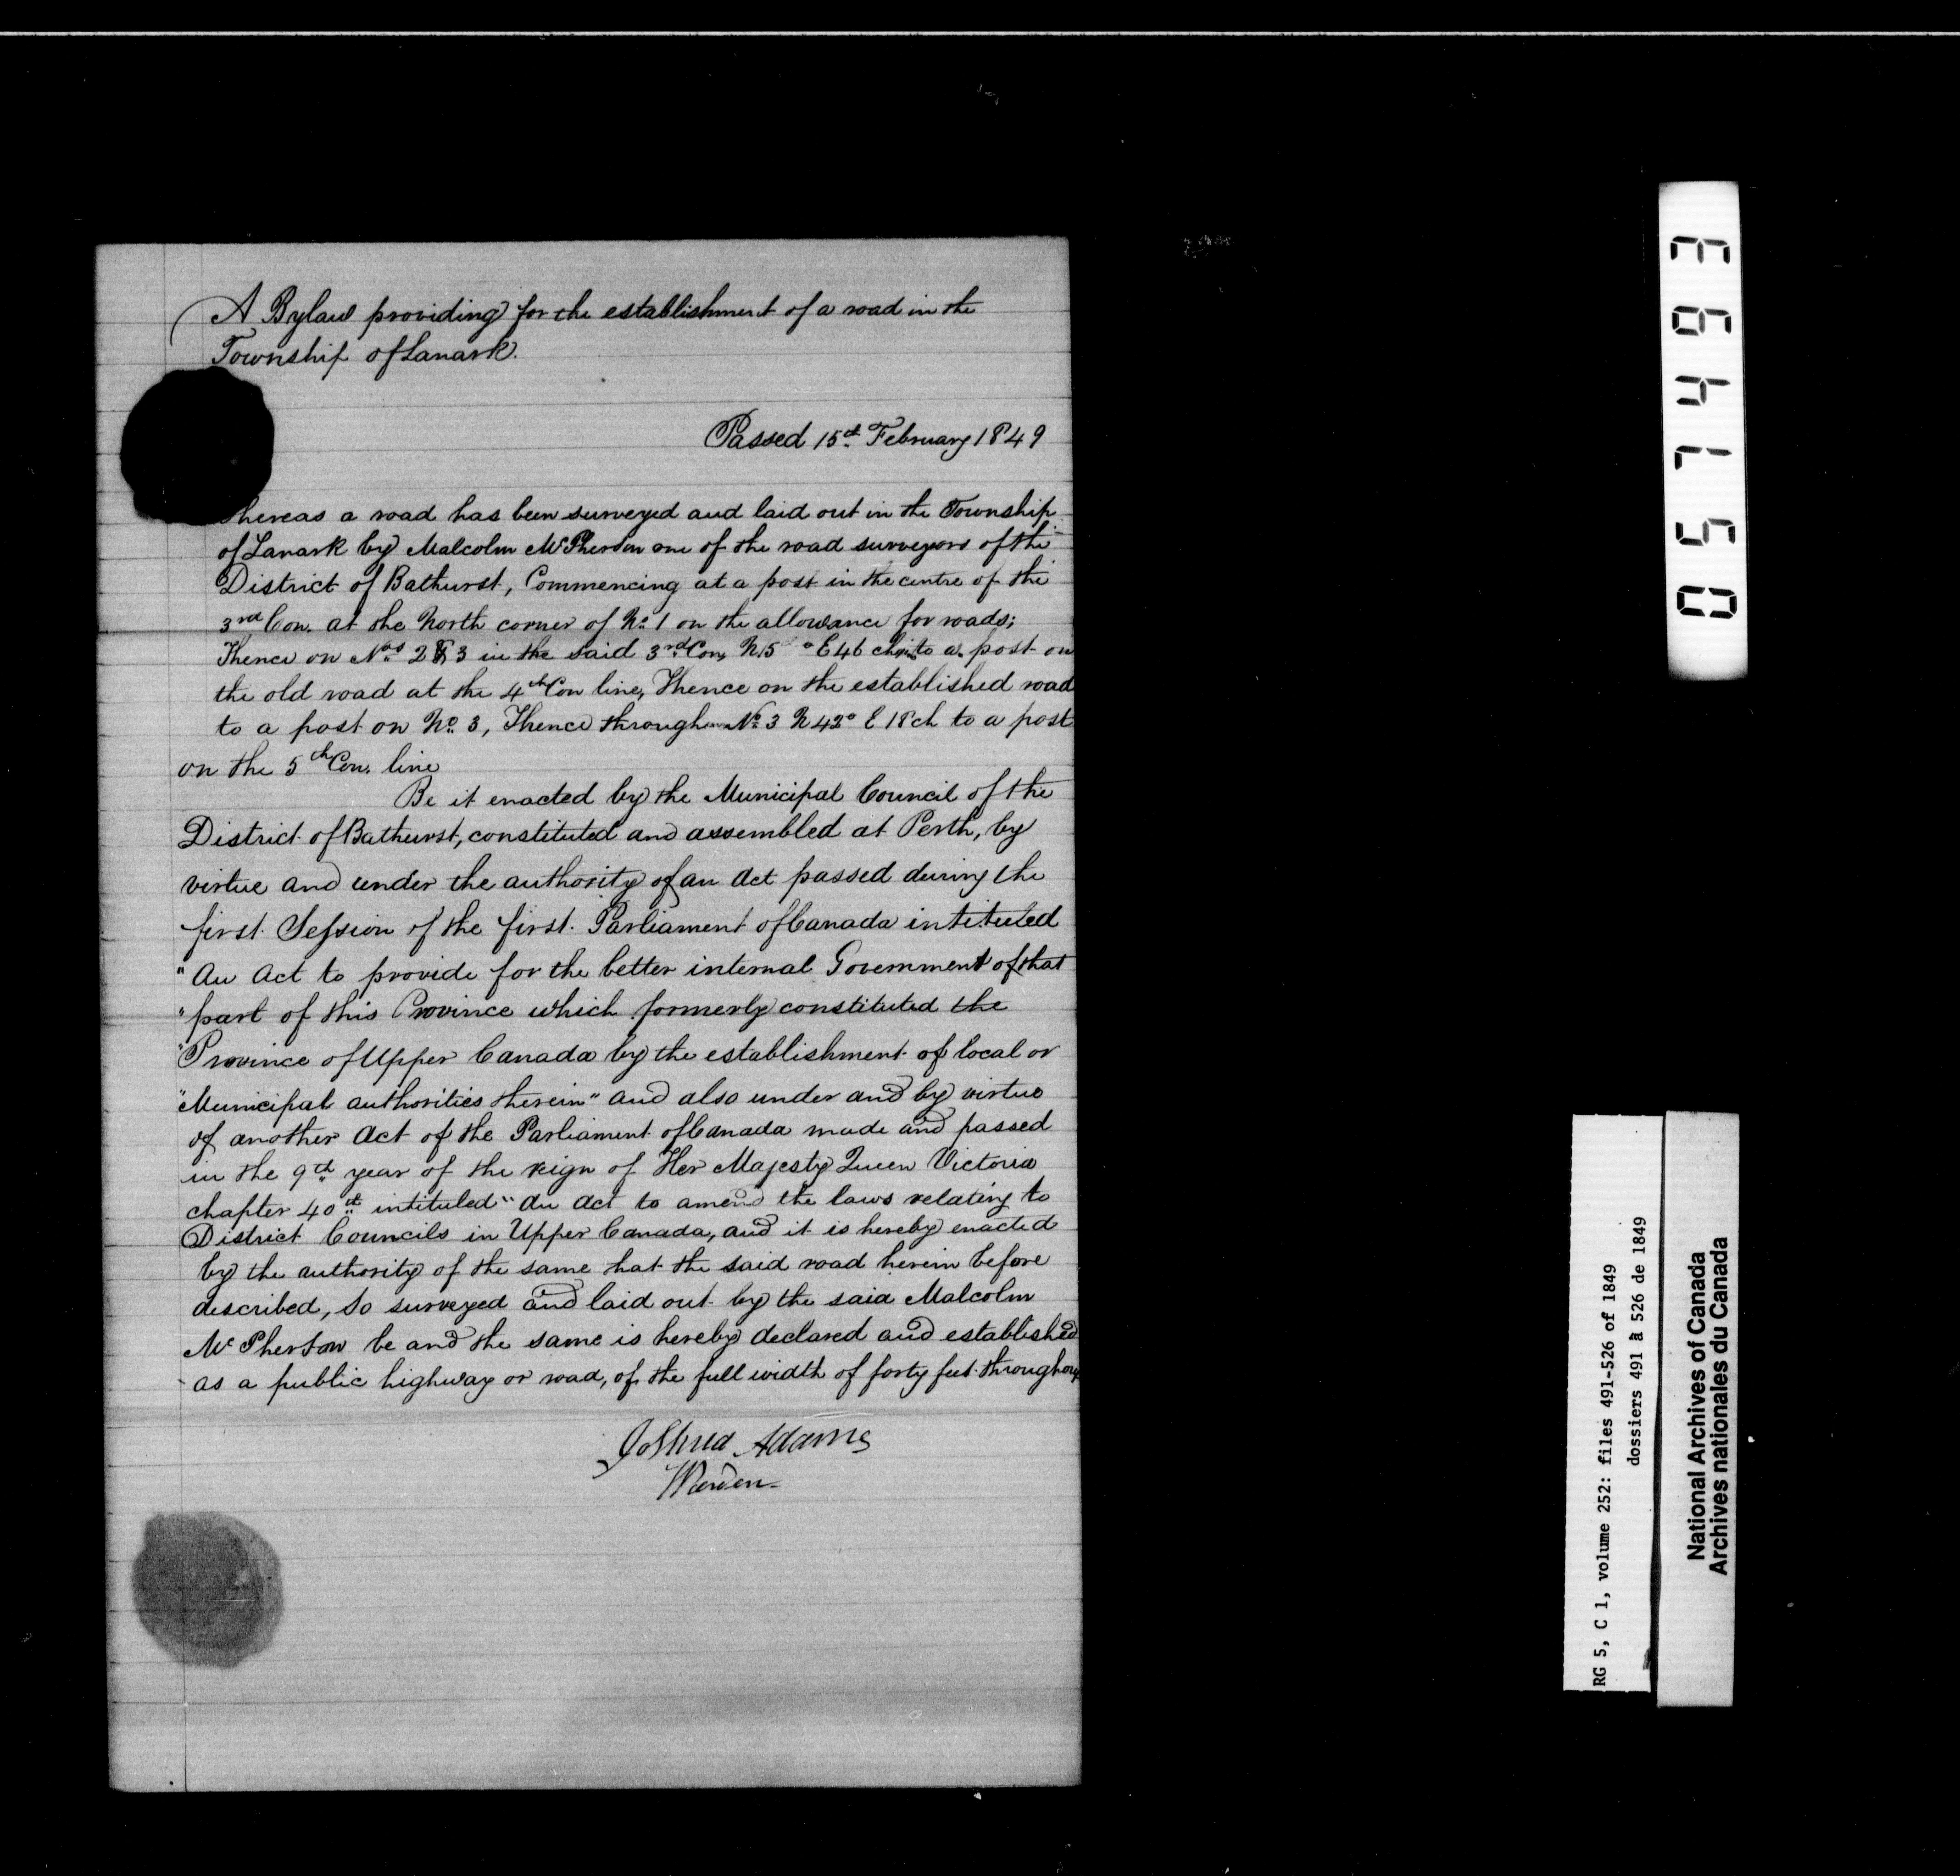 A Bylaw providing for the establishment of a road in the
Township of Lanark.
Passed 15th February 1849
hereas a road has been surveyed and laid out in the Township
of Lanark by Malcolm McPherson one of the road surveyors of the
District of Bathurst, Commencing at a post in the centre of the
3rd Con. at the North corner of No. 1 on the allowance for roads;
Thence on Nos 2 & 3 in the said 3rd Con, N 5° E 46 chs to a post on
the old road at the 4th Con line, Thence on the established road
to a post on No. 3, Thence through No. 3 N 42° E 18 ch to a post
on the 5th Con. line
Be it enacted by the Municipal Council of the
District of Bathurst, constituted and assembled at Perth, by
virtue and under the authority of an Act passed during the
first Session of the first Parliament of Canada intituled
"An Act to provide for the better internal Government of that
"part of this Province which formerly constituted the
"Province of Upper Canada by the establishment of local or
"Municipal authorities therein" and also under and by virtue
of another Act of the Parliament of Canada made and passed
in the 9th year of the reign of Her Majesty Queen Victoria
chapter 40th intituled "An Act to amend the laws relating to
District Councils in Upper Canada, and it is hereby enacted
by the authority of the same that the said road herein before
described, so surveyed and laid out by the said Malcolm
McPherson be and the same is hereby declared and established
as a public highway or road, of the full width of forty feet throughout
Joshua Adams
Warden
057493
RG 5, C 1, volume 252: files 491-526 of 1849
dossiers 491 à 526 de 1849
National Archives of Canada
Archives nationales du Canada